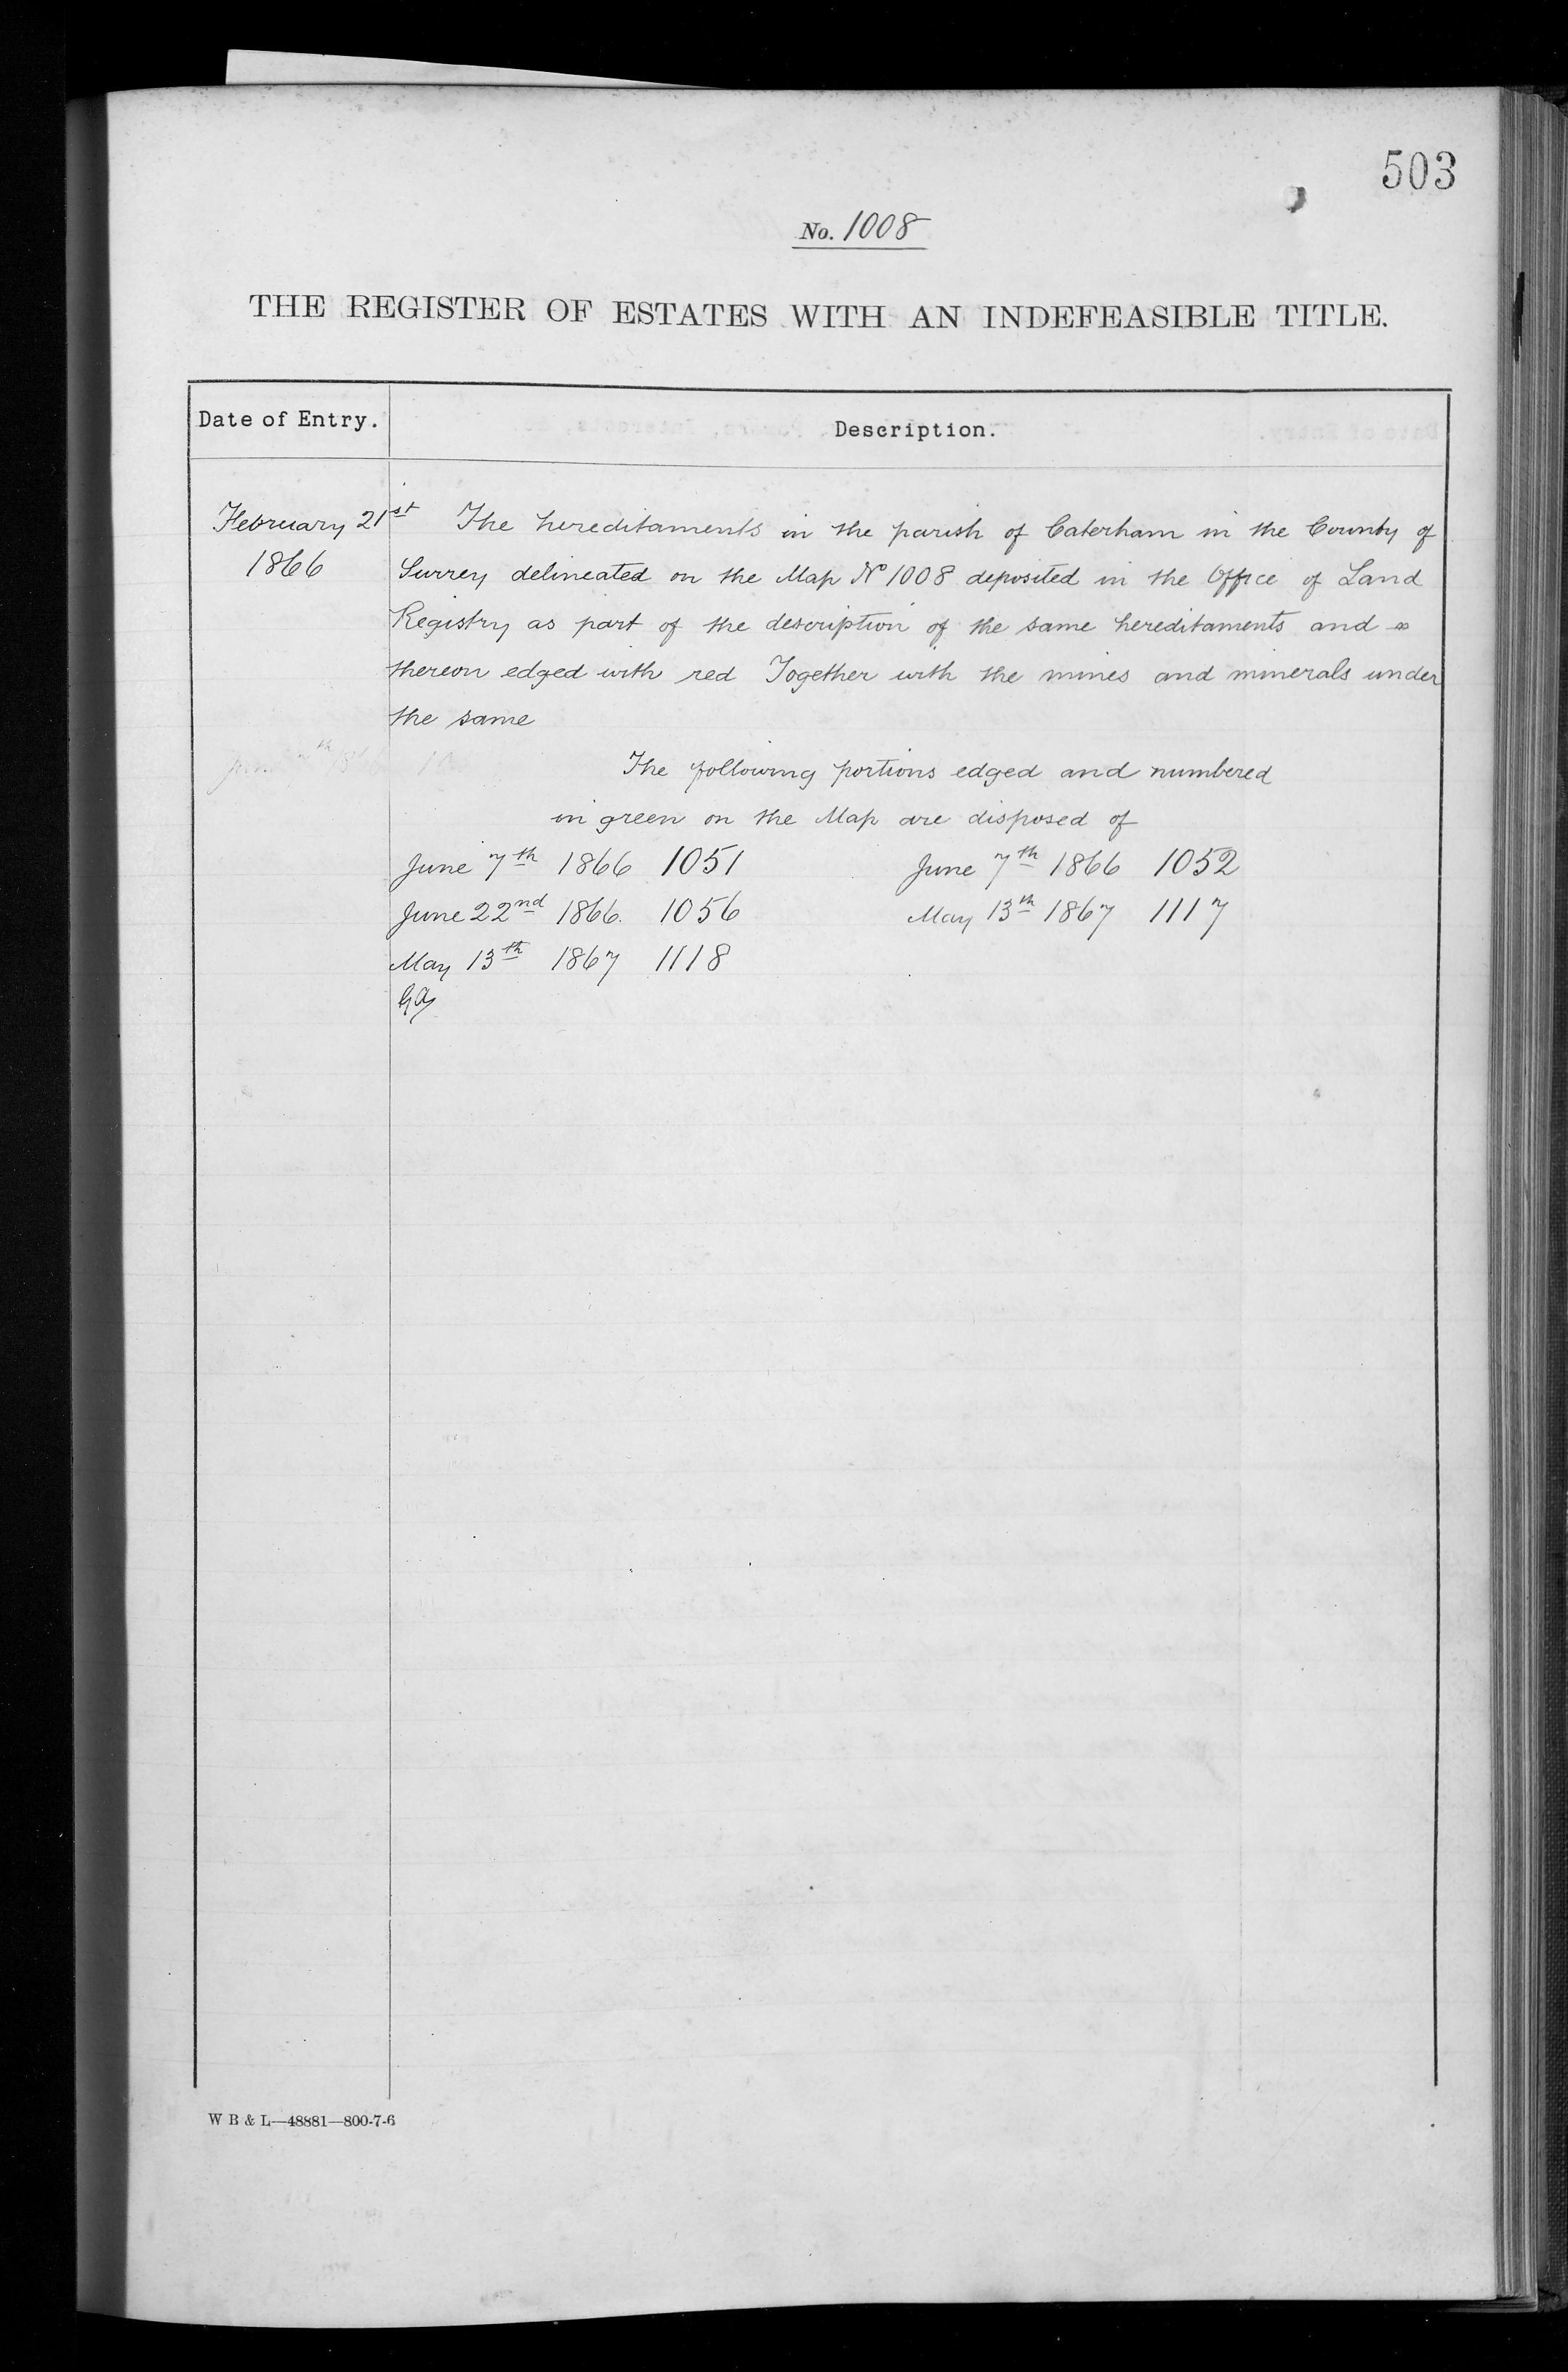 503
No. 1008
THE REGISTER OF ESTATES WITH AN INDEFEASIBLE TITLE.
Date of Entry.
Description.
February 21st The hereditaments in the parish of Caterham in the County of
1866 Surrey delineated on the Map No 1008 deposited in the Office of Land
Registry as part of the description of the same hereditaments and
thereon edged with red Together with the mines and minerals under
the same
The following portions edged and numbered
in green on the Map are disposed of
June 7th 1866 1051 June 7th 1866 1052
June 22nd 1866. 1056 May 13th 1867 1117
May 13th 1867 1118
W B & L—48881—800-7-6